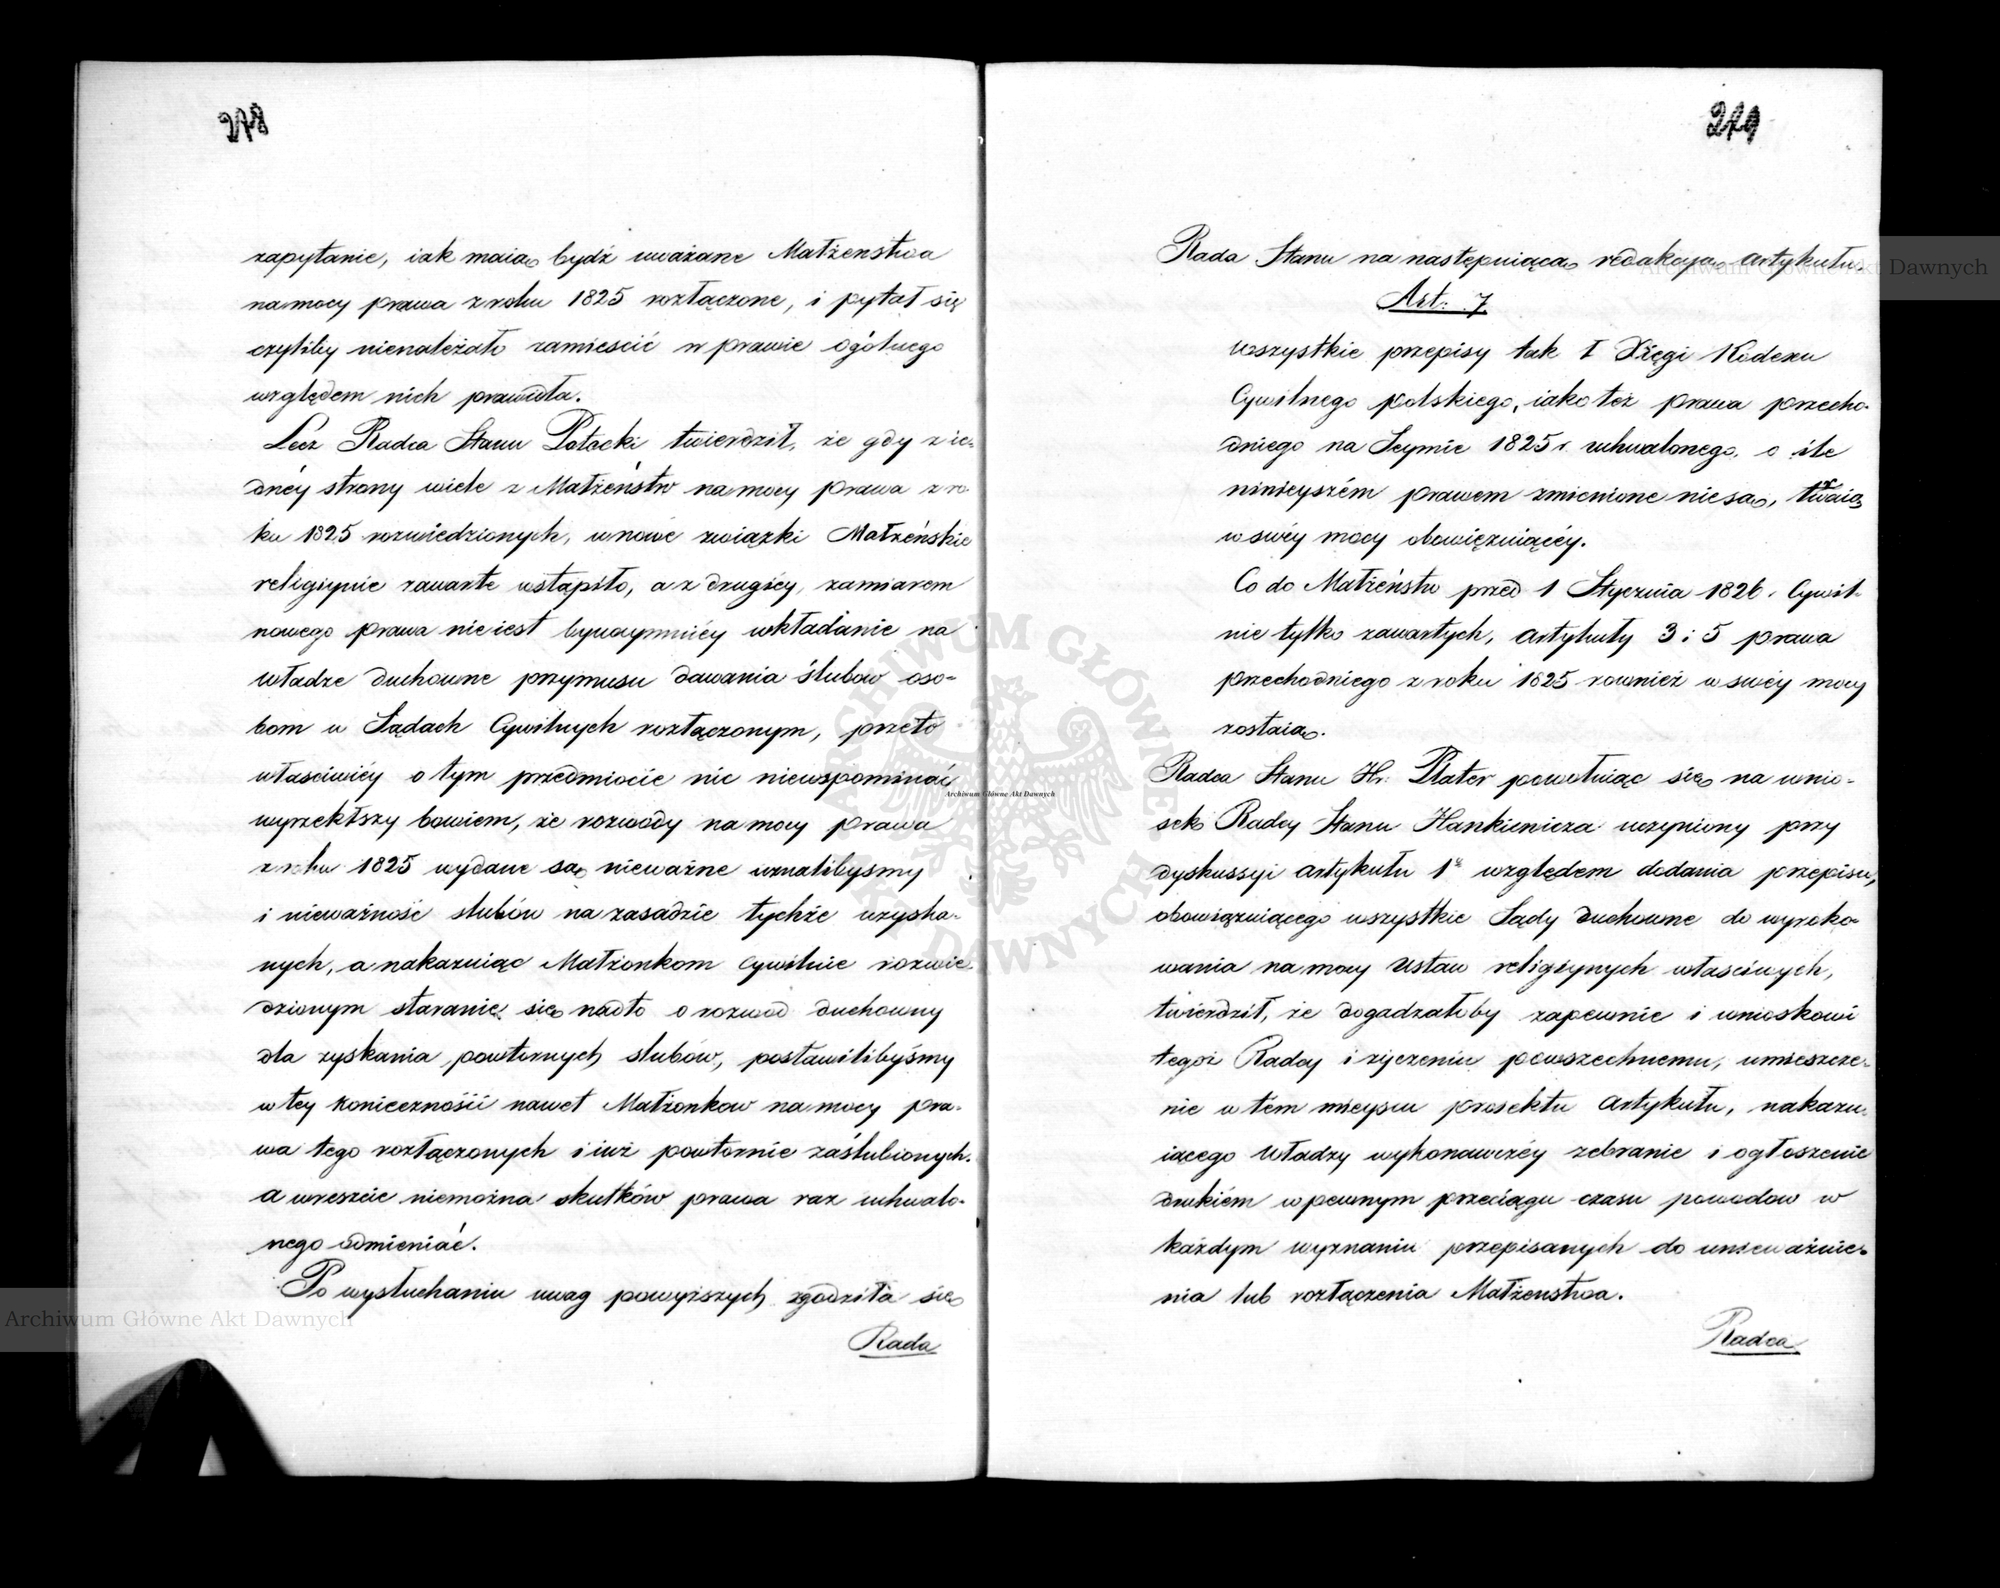 278
zapytanie, iak maią bydź uważane Małżenstwa
na mocy prawa z roku 1825 rozłączone, i pytał się
czyliby nienależało zamieścić w prawie ogólnego
względem nich prawidła.
Lecz Radca Stanu Potocki twierdził, że gdy z ie-
dnéy strony wiele z Małżeństw na mocy prawa z ro
ku 1825 rozwiedzionych, w nowe związki Małżeńskie
religiynie zawarte wstąpiło, a z drugiéy, zamiarem
nowego prawa nie iest bynaymniéy wkładanie na
władze duchowne przymusu dawania ślubow oso-
bom w Sądach Cywilnych rozłączonym, przeto
właściwiéy o tym przedmiocie nic niewspominać,
wyrzekłszy bowiem, że rozwody na mocy prawa
z roku 1825 wydane są nieważne uznalibyśmy
i nieważność slubów na zasadzie tychże uzyska-
nych, a nakazuiąc Małżonkom cywilnie rozwie-
dzionym staranie się nadto o rozwod duchowny
dla zyskania powtornych slubów, postawilibyśmy
w tey konieczności nawet Małżonkow na mocy pra-
wa tego rozłączonych i iuż powtornie zaślubionych.
a wreszcie niemożna skutków prawa raz uchwalo-
nego odmieniać.
Po wysłuchaniu uwag powyższych zgodziła się
Rada
279
Rada Stanu na następuiącą redakcyą artykułu.
Art: 7
Wszystkie przepisy tak I Xięgi Kodexu
Cywilnego polskiego, iako też prawa przecho-
dniego na Seymie 1825 r. uchwalonego, o ile
ninieyszém prawem zmienione nie są, trwaią
w swéy mocy obowięzuiącéy.
Co do Małżeństw przed 1 Stycznia 1826. Cywil-
nie tylko zawartych, artykuły 3 i 5 prawa
przechodniego z roku 1825 rownież w swéy mocy
zostaią.
Radca Stanu Hr: Plater powołuiąc się na wnio-
sek Radcy Stanu Hankiewicza uczyniony przy
dyskussyi artykułu 1º względem dodania przepisu,
obowiązuiącego wszystkie Sądy duchowne do wyroko-
wania na mocy Ustaw religiynych właściwych,
twierdził, że dogadzałoby zapewnie i wnioskowi
tegoż Radcy i życzeniu powszechnemu, umieszcze-
nie w tém mieyscu proiektu artykułu, nakazu-
iącego Władzy wykonawczéy zebranie i ogłoszenie
drukiém w pewnym przeciągu czasu powodow w
każdym wyznaniu przepisanych do unieważnie-
nia lub rozłączenia Małżenstwa.
Radca
Archiwum Główne Akt Dawnych
Archiwum Główne Akt Dawnych
Archiwum Główne Akt Dawnych
ARCHIWUM GŁÓWNE AKT DAWNYCH